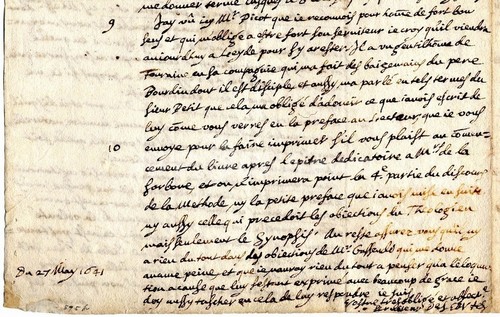 me donner terme jusques
9 J'ay vû icy Mr. Picot que ie reconnois pour hõme de fort bon
sens et qui m'oblige a estre fort son seruiteur ie croy quil viendra
auiourdhuy a Leyde pour sy arester Il a vu gentilhome de
Touraine en sa compagnie qui ma fait des baizemains du pere
Bourdin dont il est disciple et aussy ma parlé en tels termes du
sieur Petit que cela ma obligé d'adoucir ce que iauois escrit de
luy cõme vous verres en la preface au Lecteur, que ie vous
10 enuoye pour la faire imprimer s'il vous plaist au commen-
cement du liure apres l'epitre dedicatoire a Mrs de la
Sorbone, et on n'imprimera point la 4e partie du discours
de la Methode, ny la petite preface que i'auois mise en suite
ny aussy celle qui precedoit les obiections du Theologien
mais seulement le Synopsis. Au reste assurez vous qu'il ny
a rien du tout dans les obiections de Mr. Gassendi qui me donne
aucune peine, et que ie n'auray rien du tout a penser qu'a l'elegan-
ce a cause que luy sestant exprimé auec beaucoup de grace ie
doy aussy tascher en cela de luy respondre ie suis
Du 23 May 1641
vostre tres obligé et affect.
seruiteur Descartes